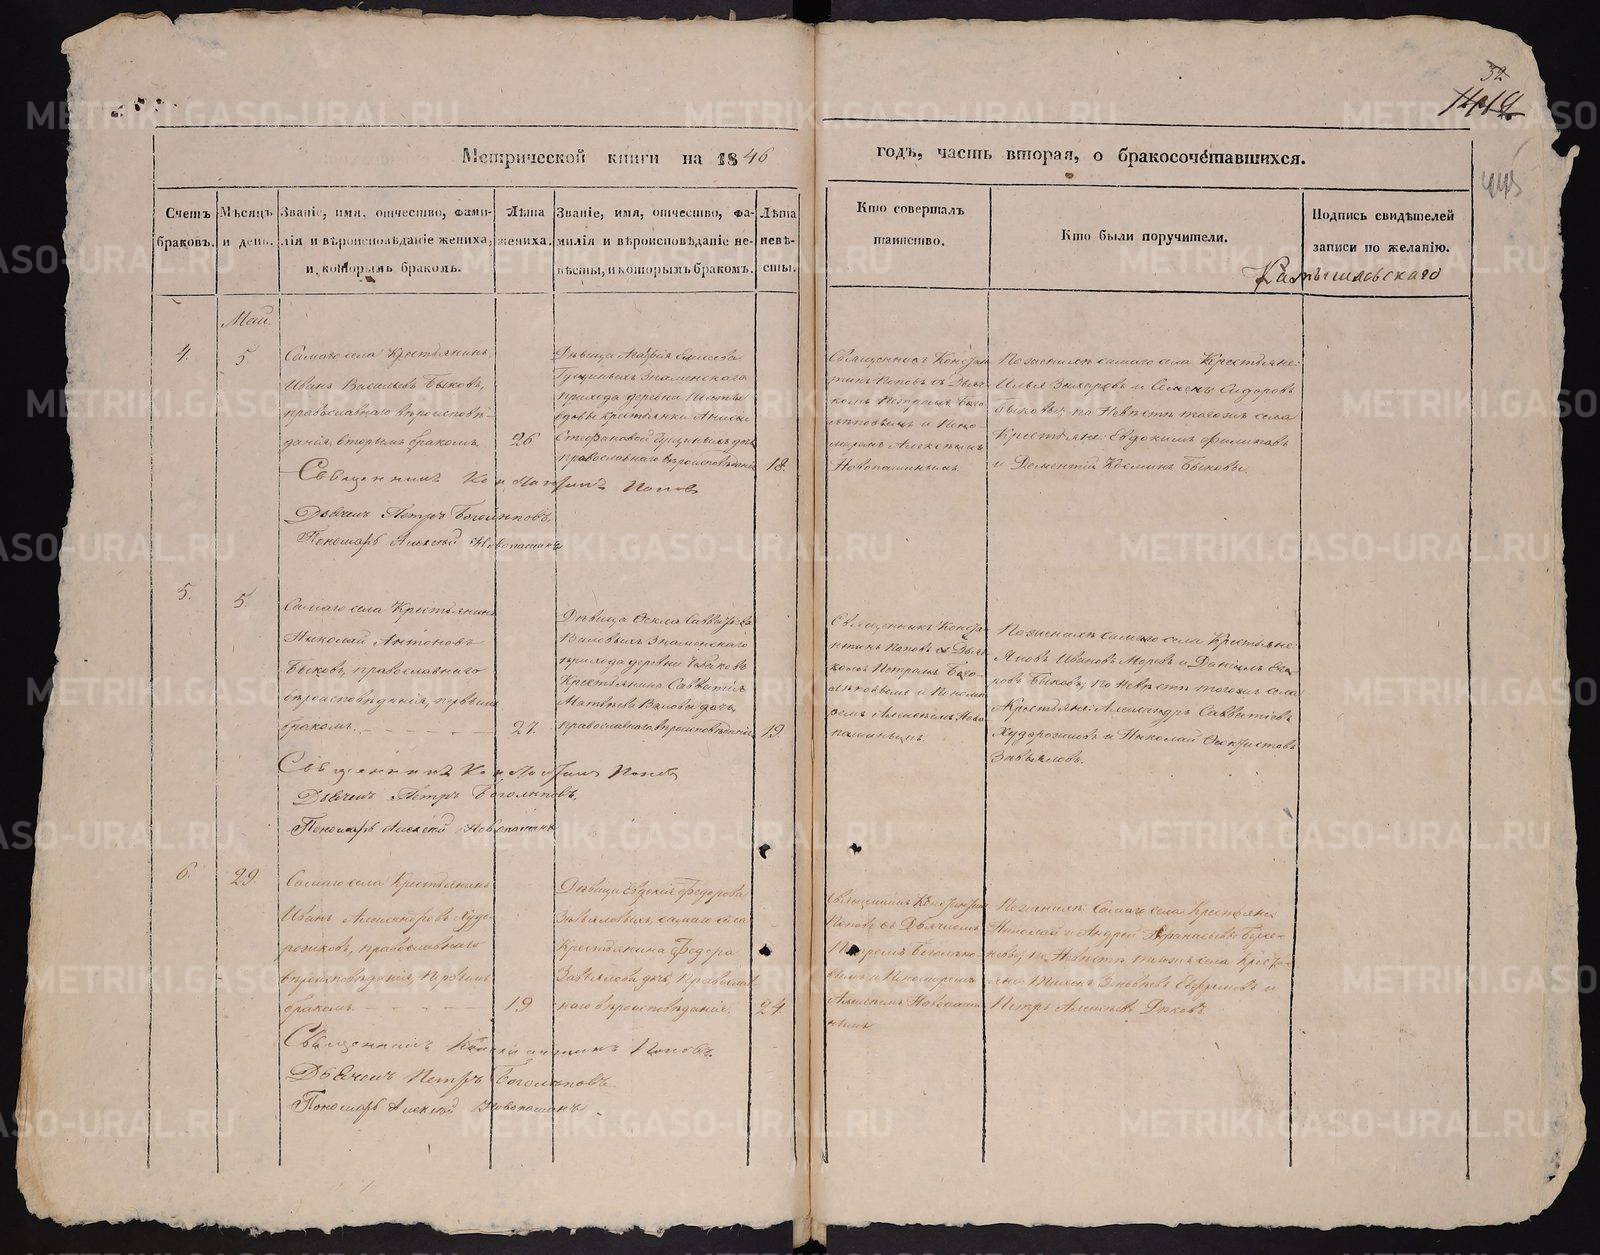 32
1419
445
Метрической книги на 1846
годъ, часть вторая, о бракосочетавшихся.
Счетъ браковъ.
Мѣсяцъ и день.
Званіе, имя, отчество, фами-
лія и вѣроисповѣданіе жениха,
и, которымъ бракомъ.
Лѣта жениха.
Званіе, имя, отчество, фа-
милія и вѣроисповѣданіе не-
вѣсты, и которымъ бракомъ.
Лѣта невѣ-
сты.
Кто совершалъ
таинство.
Кто были поручители.
Подпись свидѣтелей
записи по желанію.
Камышловскаго
Май.
4.
5.
Самаго села Крестьянинъ
Иванъ Васильевъ Быковъ,
православнаго вѣроисповѣ-
данія, вторымъ бракомъ.
26
Дѣвица Елисеева
Гущиныхъ Знаменскаго
прихода деревни
вдовы крестьянки Анисьи
Стефановой Гущиныхъ дочь
православнаго вѣроисповѣданія
18.
Священникъ Констан-
тинъ Поповъ съ Дьяч-
комъ Петромъ Бого-
лѣповымъ и Поно-
маремъ Алексѣемъ
Новопашинымъ.
По женихѣ самаго села Крестьяне:
Илья Захаровъ и Семенъ Сидоровъ
Быковы; по Невѣстѣ тогожъ села
Крестьяне: Евдокимъ Филиповъ
и Дементій Козминъ Быковы.
Священникъ Константинъ Поповъ
Дьячекъ Петръ Боголѣповъ.
Пономарь Алексѣй Новопашинъ
5.
5.
Самаго села Крестьянинъ
Николай Антоновъ
Быковъ, православнаго
вѣроисповѣданія, первымъ
бракомъ.
27.
Дѣвица Ѳекла Савватѣева
Знаменскаго
прихода деревни
Крестьянина Савватія
Матвѣева дочь,
православнаго вѣроисповѣданія
19.
Священникъ Констан-
тинъ Поповъ съ Дьяч-
комъ Петромъ Бого-
лѣповымъ и Понома-
ремъ Алексѣемъ Ново-
пашинымъ.
По женихѣ самаго села Крестьяне
Яковъ Ивановъ и Даніилъ
Быковъ; по Невѣстѣ тогожъ села
Крестьяне: Александръ Савватіевъ
Худорожковъ и Николай Ѳеоктистовъ
Завьяловъ.
Священникъ Константинъ Поповъ
Дьячекъ Петръ Боголѣповъ.
Пономарь Алексѣй Новопашинъ
6.
29.
Самаго села Крестьянинъ
Иванъ Александровъ Худо-
рожковъ, православнаго
вѣроисповѣданія, Первымъ
бракомъ
19
Дѣвица Евдокія Федорова
Завьяловыхъ, самаго села
Крестьянина Федора
Завьялова дочь, Православ-
наго вѣроисповѣданія.
24.
Священникъ Константинъ
Поповъ съ Дьячкомъ
Петромъ Боголѣпо-
вымъ и Пономаремъ
Алексѣемъ Новопаши-
нымъ
По женихѣ: Самаго села Крестьяне
Николай и Андрей Афанасьевы
по Невѣстѣ тогожъ села Кресть-
яне: Ефремовъ и
Петръ Алексѣевъ
Священникъ Константинъ Поповъ.
Дьячекъ Петръ Боголѣповъ
Пономарь Алексѣй Новопашинъ
METRIKI.GASO-URAL.RU